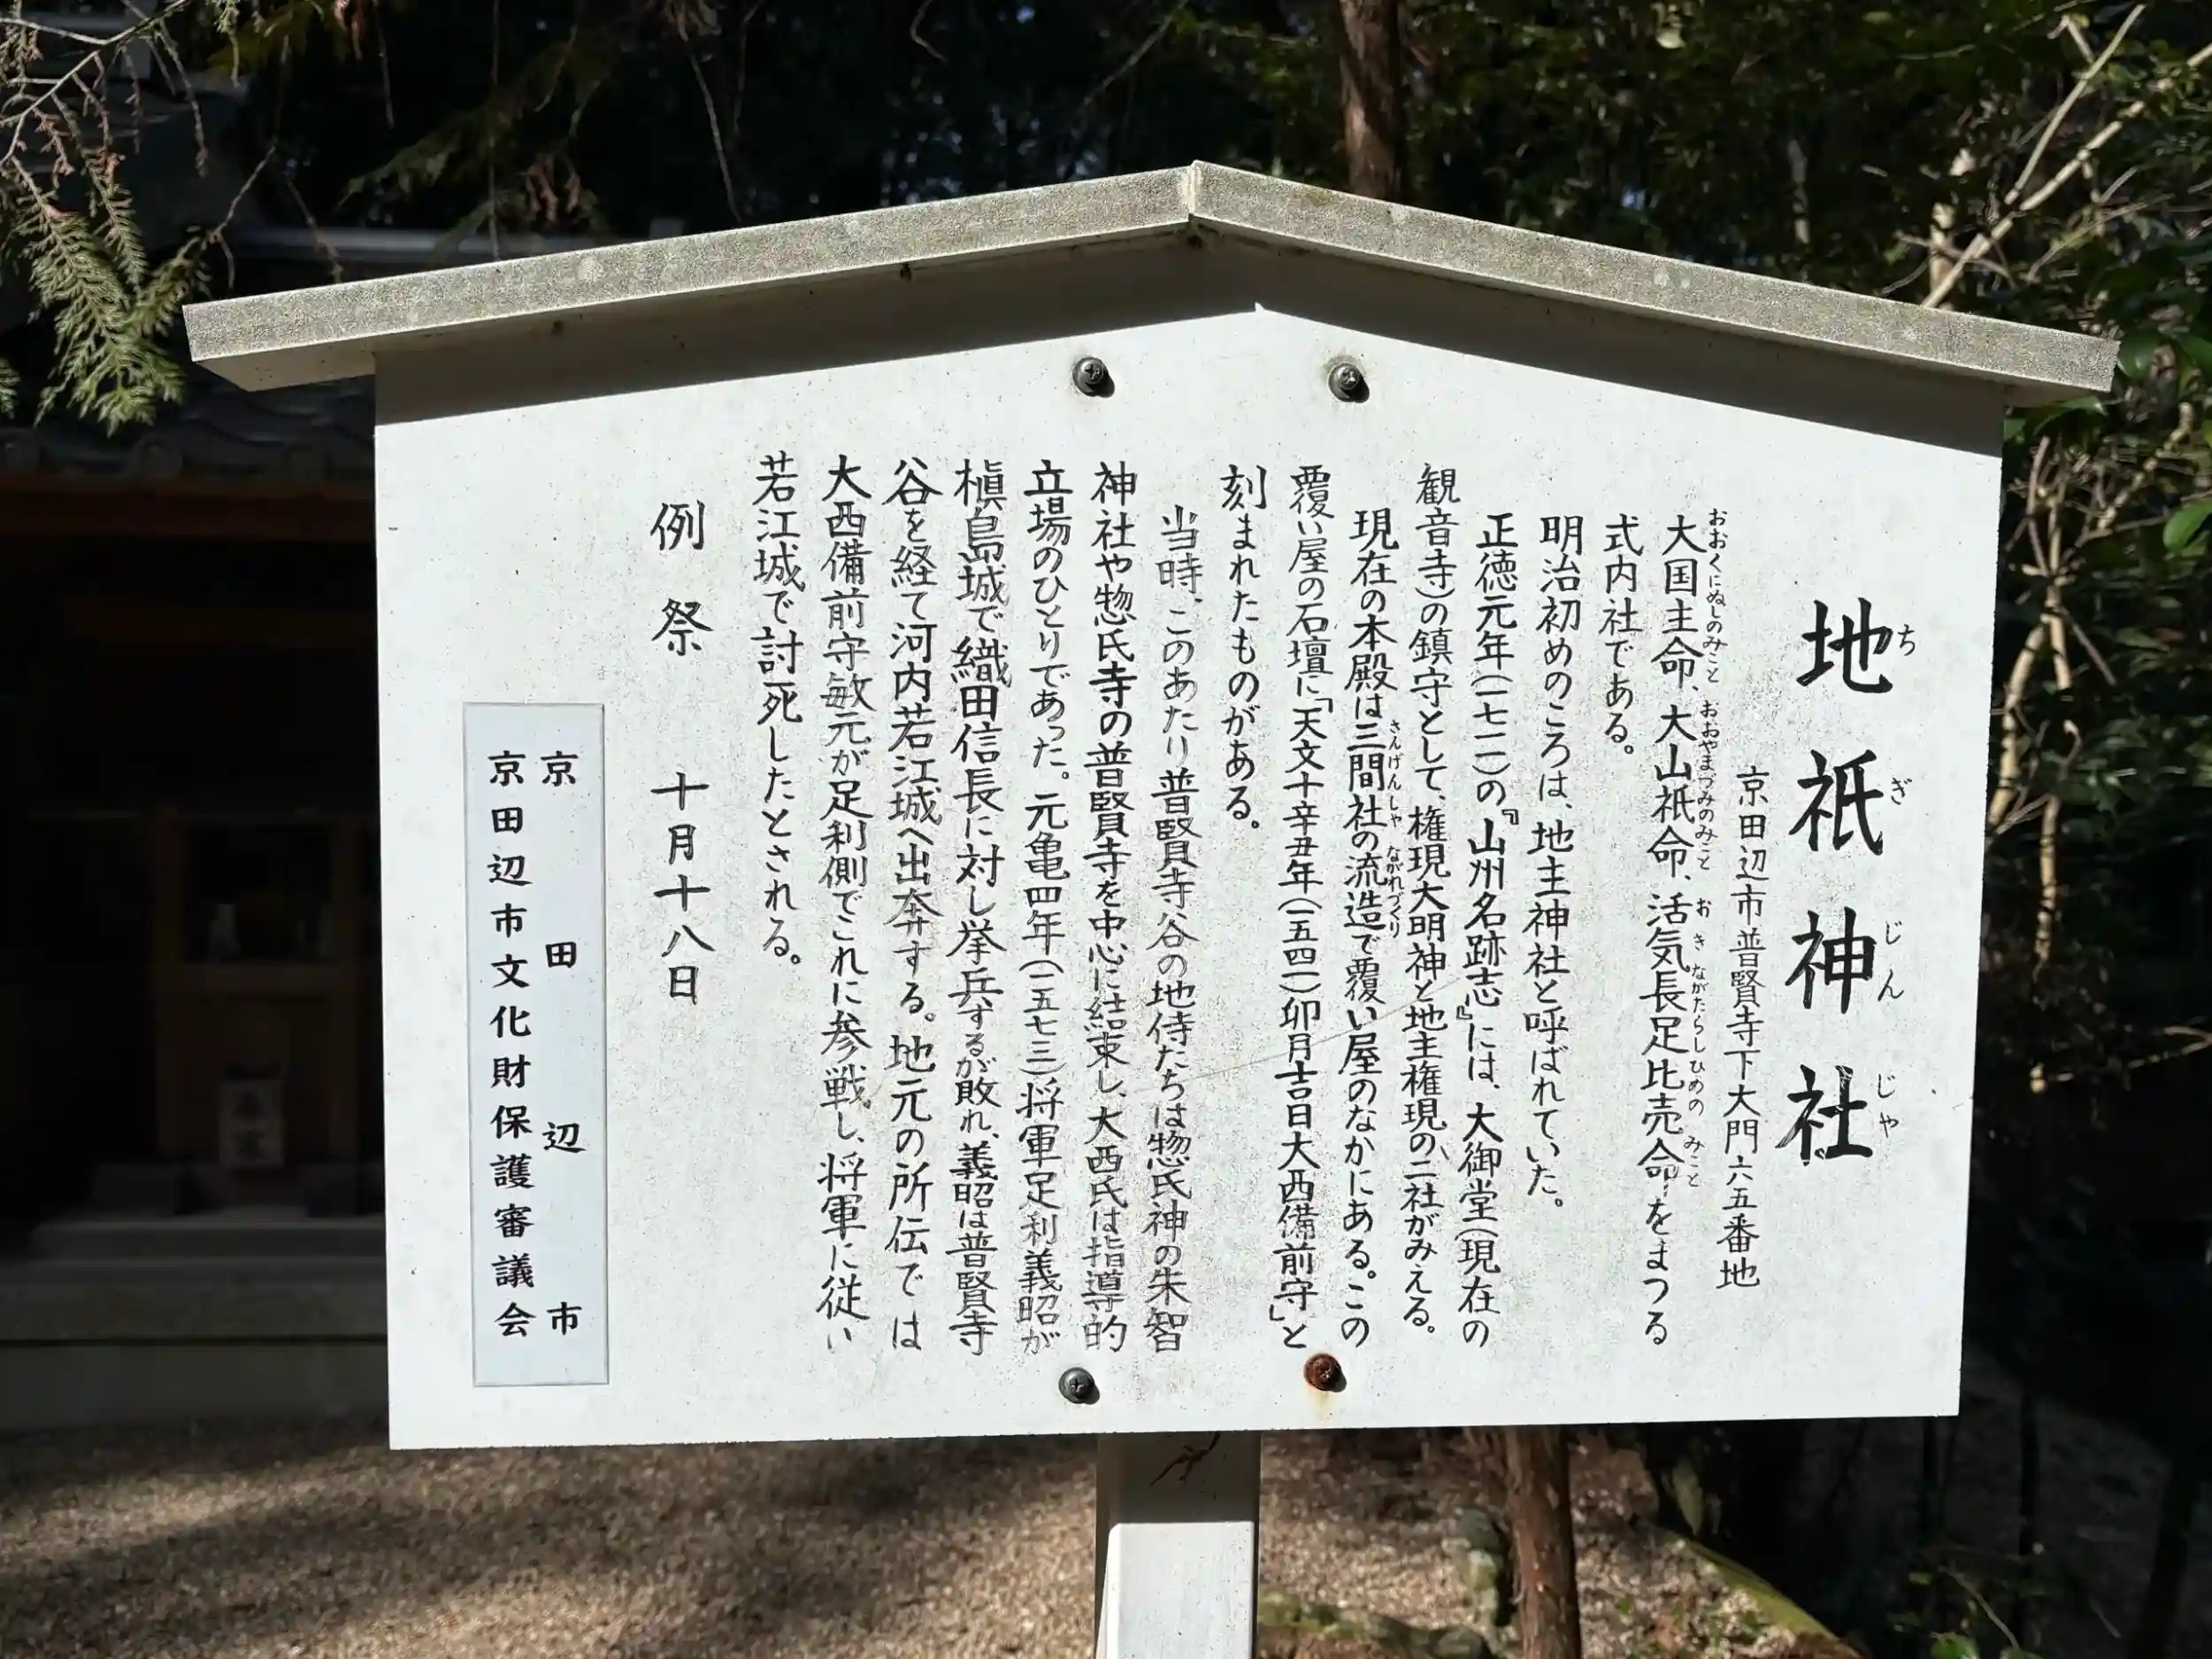 地祇神社
ちぎじんじゃ
京田辺市普賢寺下大門六五番地
おおくにぬしのみこと おおやまづみのみこと おきながたらしひめのみこと
大国主命、大山祇命、活気長足比売命をまつる
式内社である。
明治初めのころは、地主神社と呼ばれていた。
正徳元年(一七一一)の『山州名跡志』には、大御堂(現在の
観音寺)の鎮守として、権現大明神と地主権現の二社がみえる。
さんげんしゃ ながれづくり
現在の本殿は三間社の流造で覆い屋のなかにある。この
覆い屋の石壇に「天文十辛丑年(一五四一)卯月吉日大西備前守」と
刻まれたものがある。
当時、このあたり普賢寺谷の地侍たちは惣氏神の朱智
神社や惣氏寺の普賢寺を中心に結束し、大西氏は指導的
立場のひとりであった。元亀四年(一五七三)将軍足利義昭が
槇島城で織田信長に対し挙兵するが敗れ、義昭は普賢寺
谷を経て河内若江城へ出奔する。地元の所伝では
大西備前守敏元が足利側でこれに参戦し、将軍に従い
若江城で討死したとされる。
例祭 十月十八日
京田辺市
京田辺市文化財保護審議会